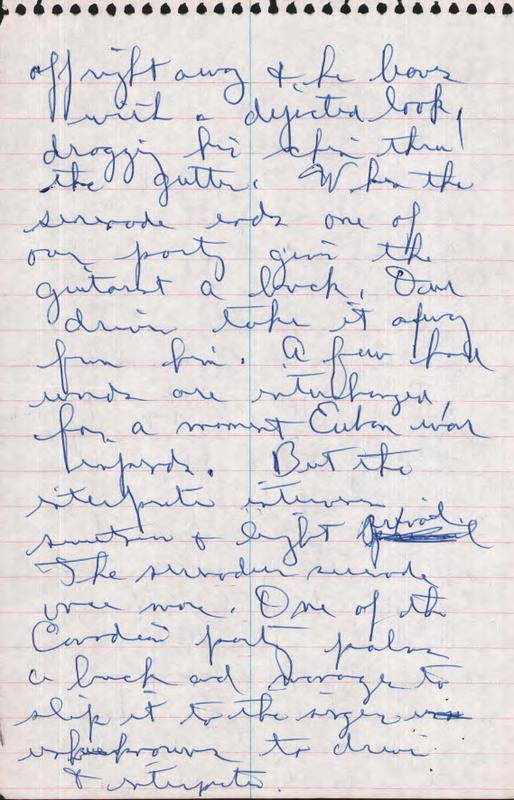 off right away & he leaves
with a dejected look,
dragging his chin thru
the gutter. When the
serenade ends one of
our party gives the
guitarist a buck. Our
driver takes it away
from him. A few hard
words are interchanged
for a moment Cuban war
impends. But the
interpreter intervenes
& light
The serenaders serenade
once more. One of the
Canadian party palms
a buck and manages to
slip it to the singer
unbeknownst to driver
& interpreter.